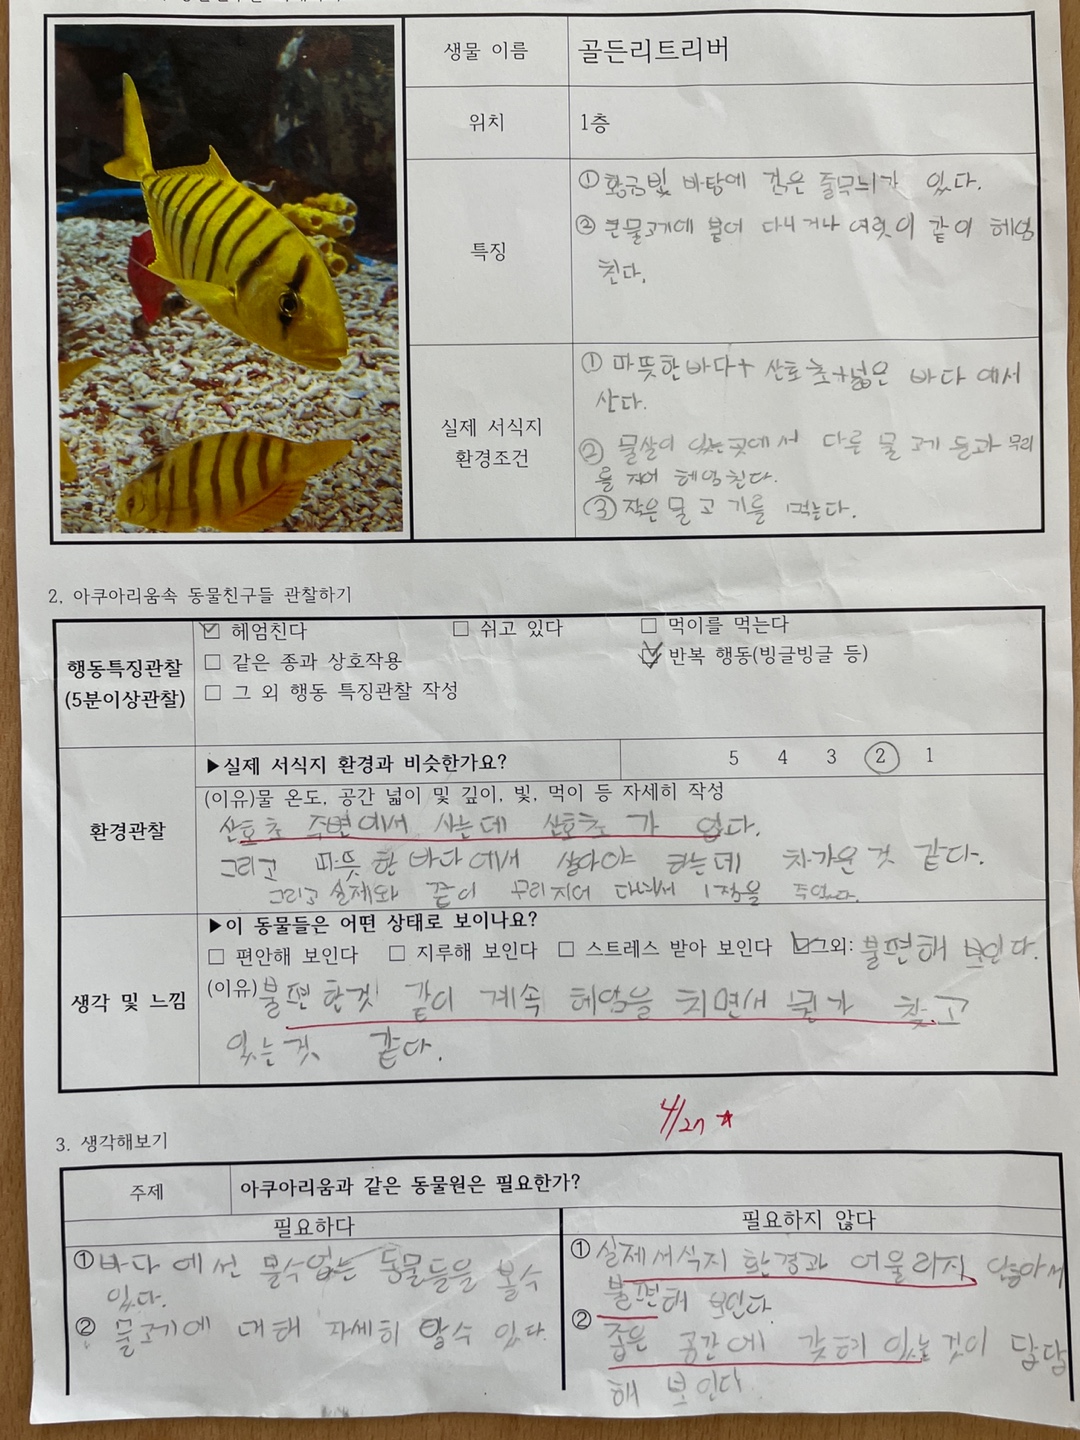 생물 이름
골든리트리버
위치
1층
특징
①황금빛 바탕에 검은 줄무늬가 있다.
②큰물고기에 붙어 다니거나 여럿이 같이 헤엄
친다.
실제 서식지
환경조건
① 따뜻한바다+ 산호초+넓은 바다에서
산다.
② 물살이 있는곳에서 다른 물고기들과 무리
를 지어 헤엄친다.
③ 작은물고기를 먹는다.
2. 아쿠아리움속 동물친구들 관찰하기
행동특징관찰
(5분이상관찰)
☑ 헤엄친다 □ 쉬고 있다 □ 먹이를 먹는다
□ 같은 종과 상호작용 ☑ 반복 행동(빙글빙글 등)
□ 그 외 행동 특징관찰 작성
환경관찰
▶실제 서식지 환경과 비슷한가요? 5 4 3 ② 1
(이유)물 온도, 공간 넓이 및 깊이, 빛, 먹이 등 자세히 작성
산호초 주변에서 사는데 산호초가 없다.
그리고 따뜻한 바다에서 살아야 하는데 차가운것 같다.
그리고 실제와 같이 무리지어 다녀서 1점을 주었다.
생각 및 느낌
▶이 동물들은 어떤 상태로 보이나요?
□ 편안해 보인다 □ 지루해 보인다 □ 스트레스 받아 보인다 ☑그외: 불편해 보인다.
(이유)불편한것 같이 계속 헤엄을 치면서 뭔가 찾고
있는것 같다.
4/27
3. 생각해보기
주제
아쿠아리움과 같은 동물원은 필요한가?
필요하다
①바다에선 볼수없는 동물들을 볼수
있다.
② 물고기에 대해 자세히 알수 있다.
필요하지 않다
① 실제서식지 환경과 어울리지 않아서
불편해 보인다.
② 좁은 공간에 갖혀 있는것이 답답
해 보인다.